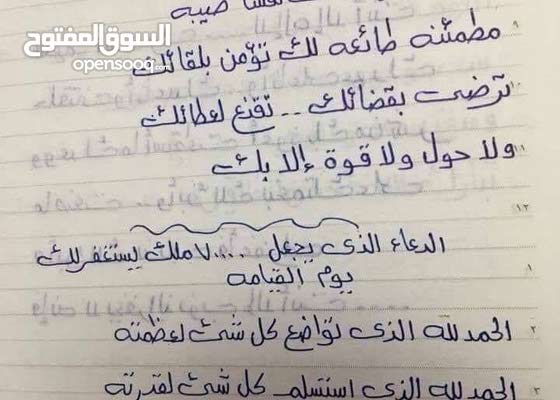 نفسا طيبه
السوق المفتوح
opensooq.com
مطمئنه طائعه لك تؤمن بلقائك
ترضى بقضائك .. تقنع لعطائك
ولا حول ولا قوة إلا بك
١٢
الدعاء الذى يجعل ٧٠٠٠٠ ملك يستغفر لك
١
يوم القيامه
٢ الحمد لله الذى تواضع كل شئ لعظمته
٣ الحمد لله الذى استسلم كل شئ لقدرته